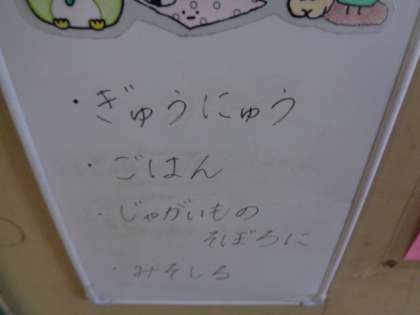 ・ぎゅうにゅう
・ごはん
・じゃがいもの
そぼろに
・みそしる